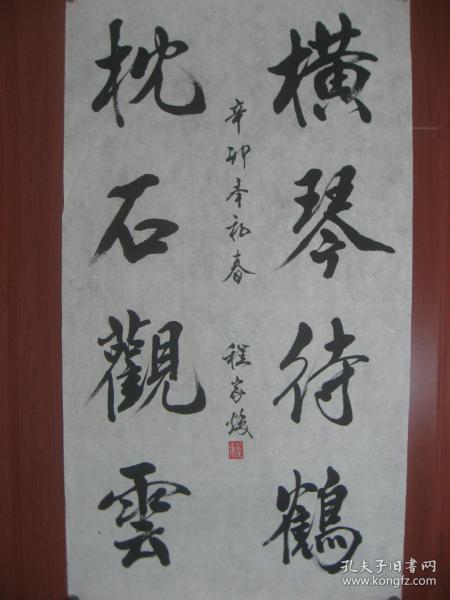 橫琴待鶴
枕石觀雲
辛卯年初春
程家煥
孔夫子旧书网
www.kongfz.com